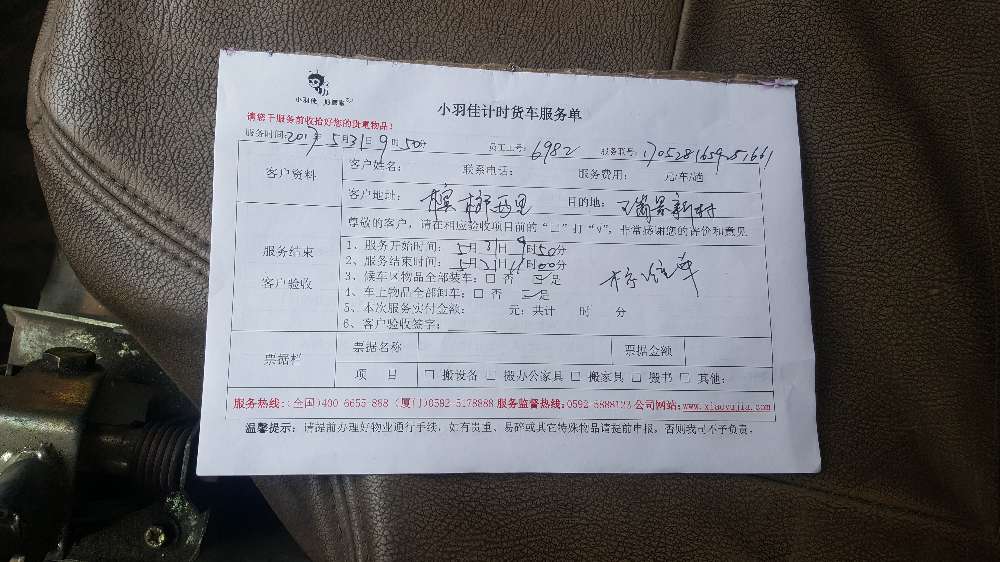 小羽佳 好管家
小羽佳计时货车服务单
请您于服务前收拾好您的贵重物品!
服务时间:2017年5月31日9时50分 员工工号:6982 服务单号:170528165951661
客户资料
客户姓名: 联系电话: 服务费用: 元/车/趟
客户地址: 槟榔西里 目的地: 瑞景新村
服务结束
客户验收
尊敬的客户,请在相应验收项目前的“□”打“√”,非常感谢您的评价和意见
1、服务开始时间:5月31日9时50分
2、服务结束时间:5月31日11时00分
3、候车区物品全部装车:□ 否 ☑是
4、车上物品全部卸车:□ 否 ☑是
5、本次服务实付金额: 元;共计 时 分
6、客户验收签字:
票据栏
票据名称 票据金额
项 目 □ 搬设备 □ 搬办公家具 □ 搬家具 □ 搬书 □ 其他:
服务热线:(全国)400-6655-888 (厦门)0592-5178888 服务监督热线:0592-5888122 公司网站:www.xiaoyujia.com
温馨提示:请提前办理好物业通行手续,如有贵重、易碎或其它特殊物品请提前申报,否则我司不予负责。